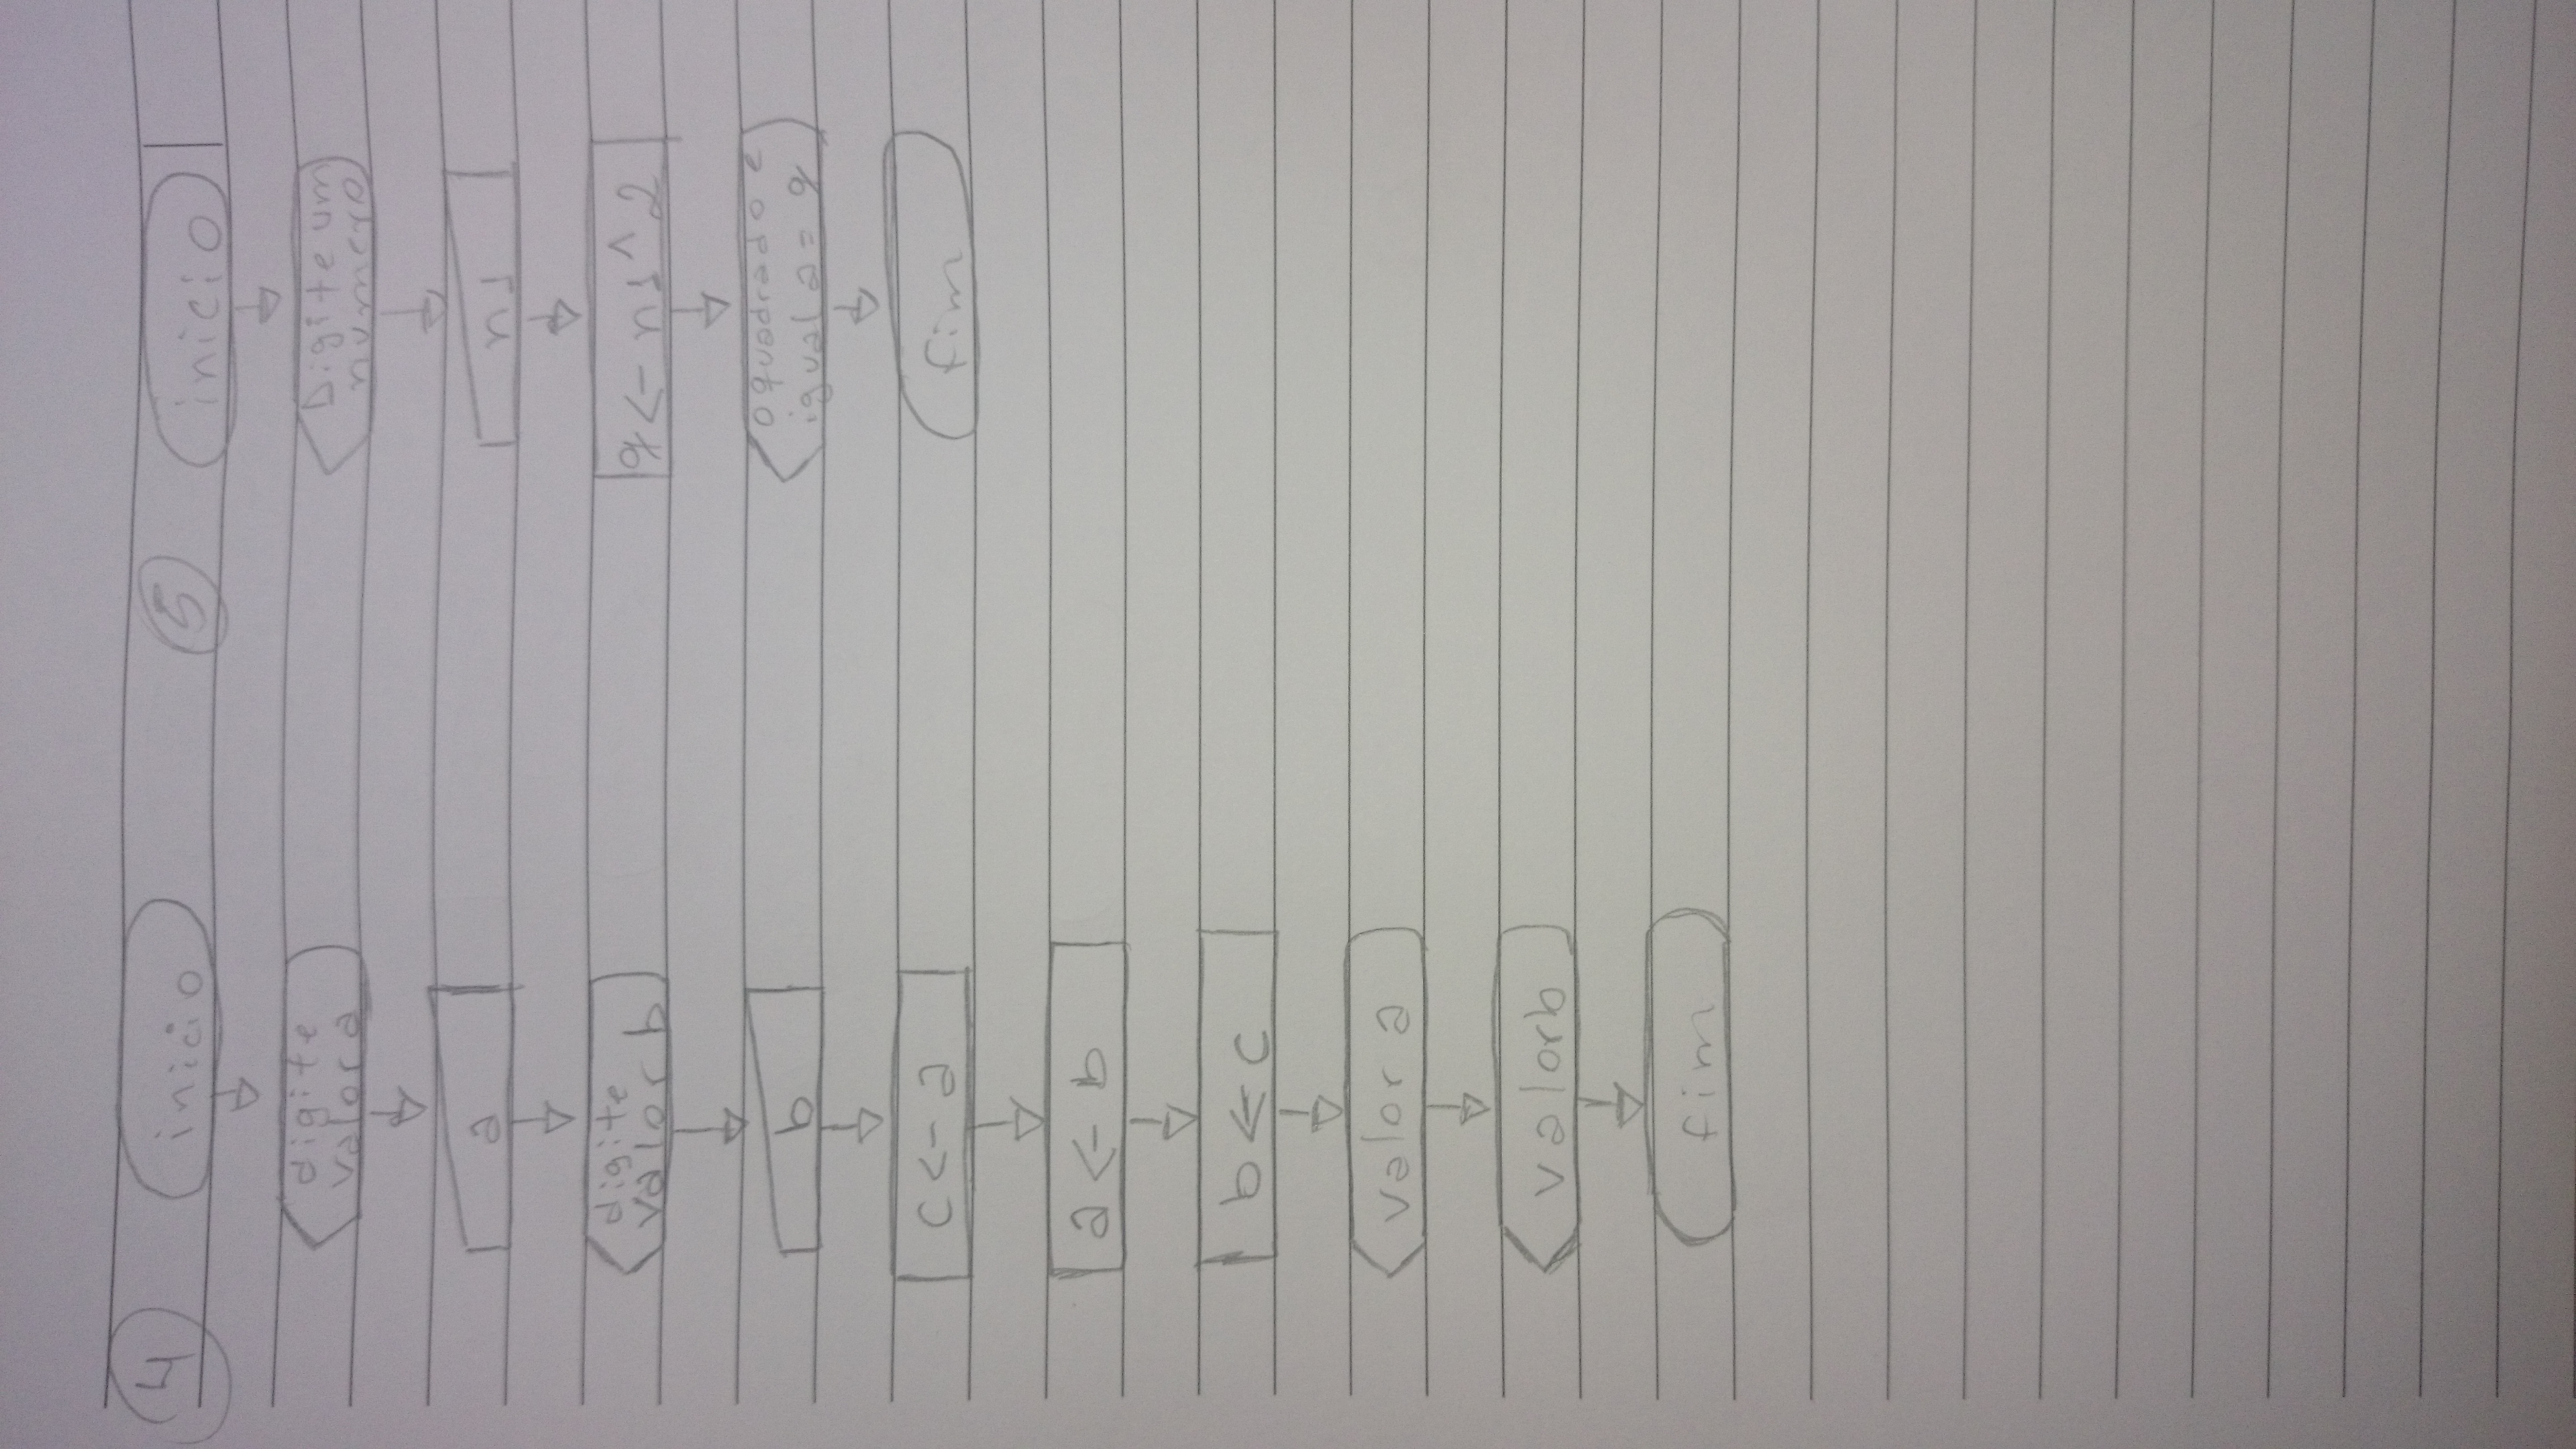 4
inicio
digite
valor a
a
digite
valor b
b
c <- a
a <- b
b <- c
valor a
valor b
fim
5
inicio
Digite um
numero
n1
q <- n1^2
o quadrado é
igual a = q
fim